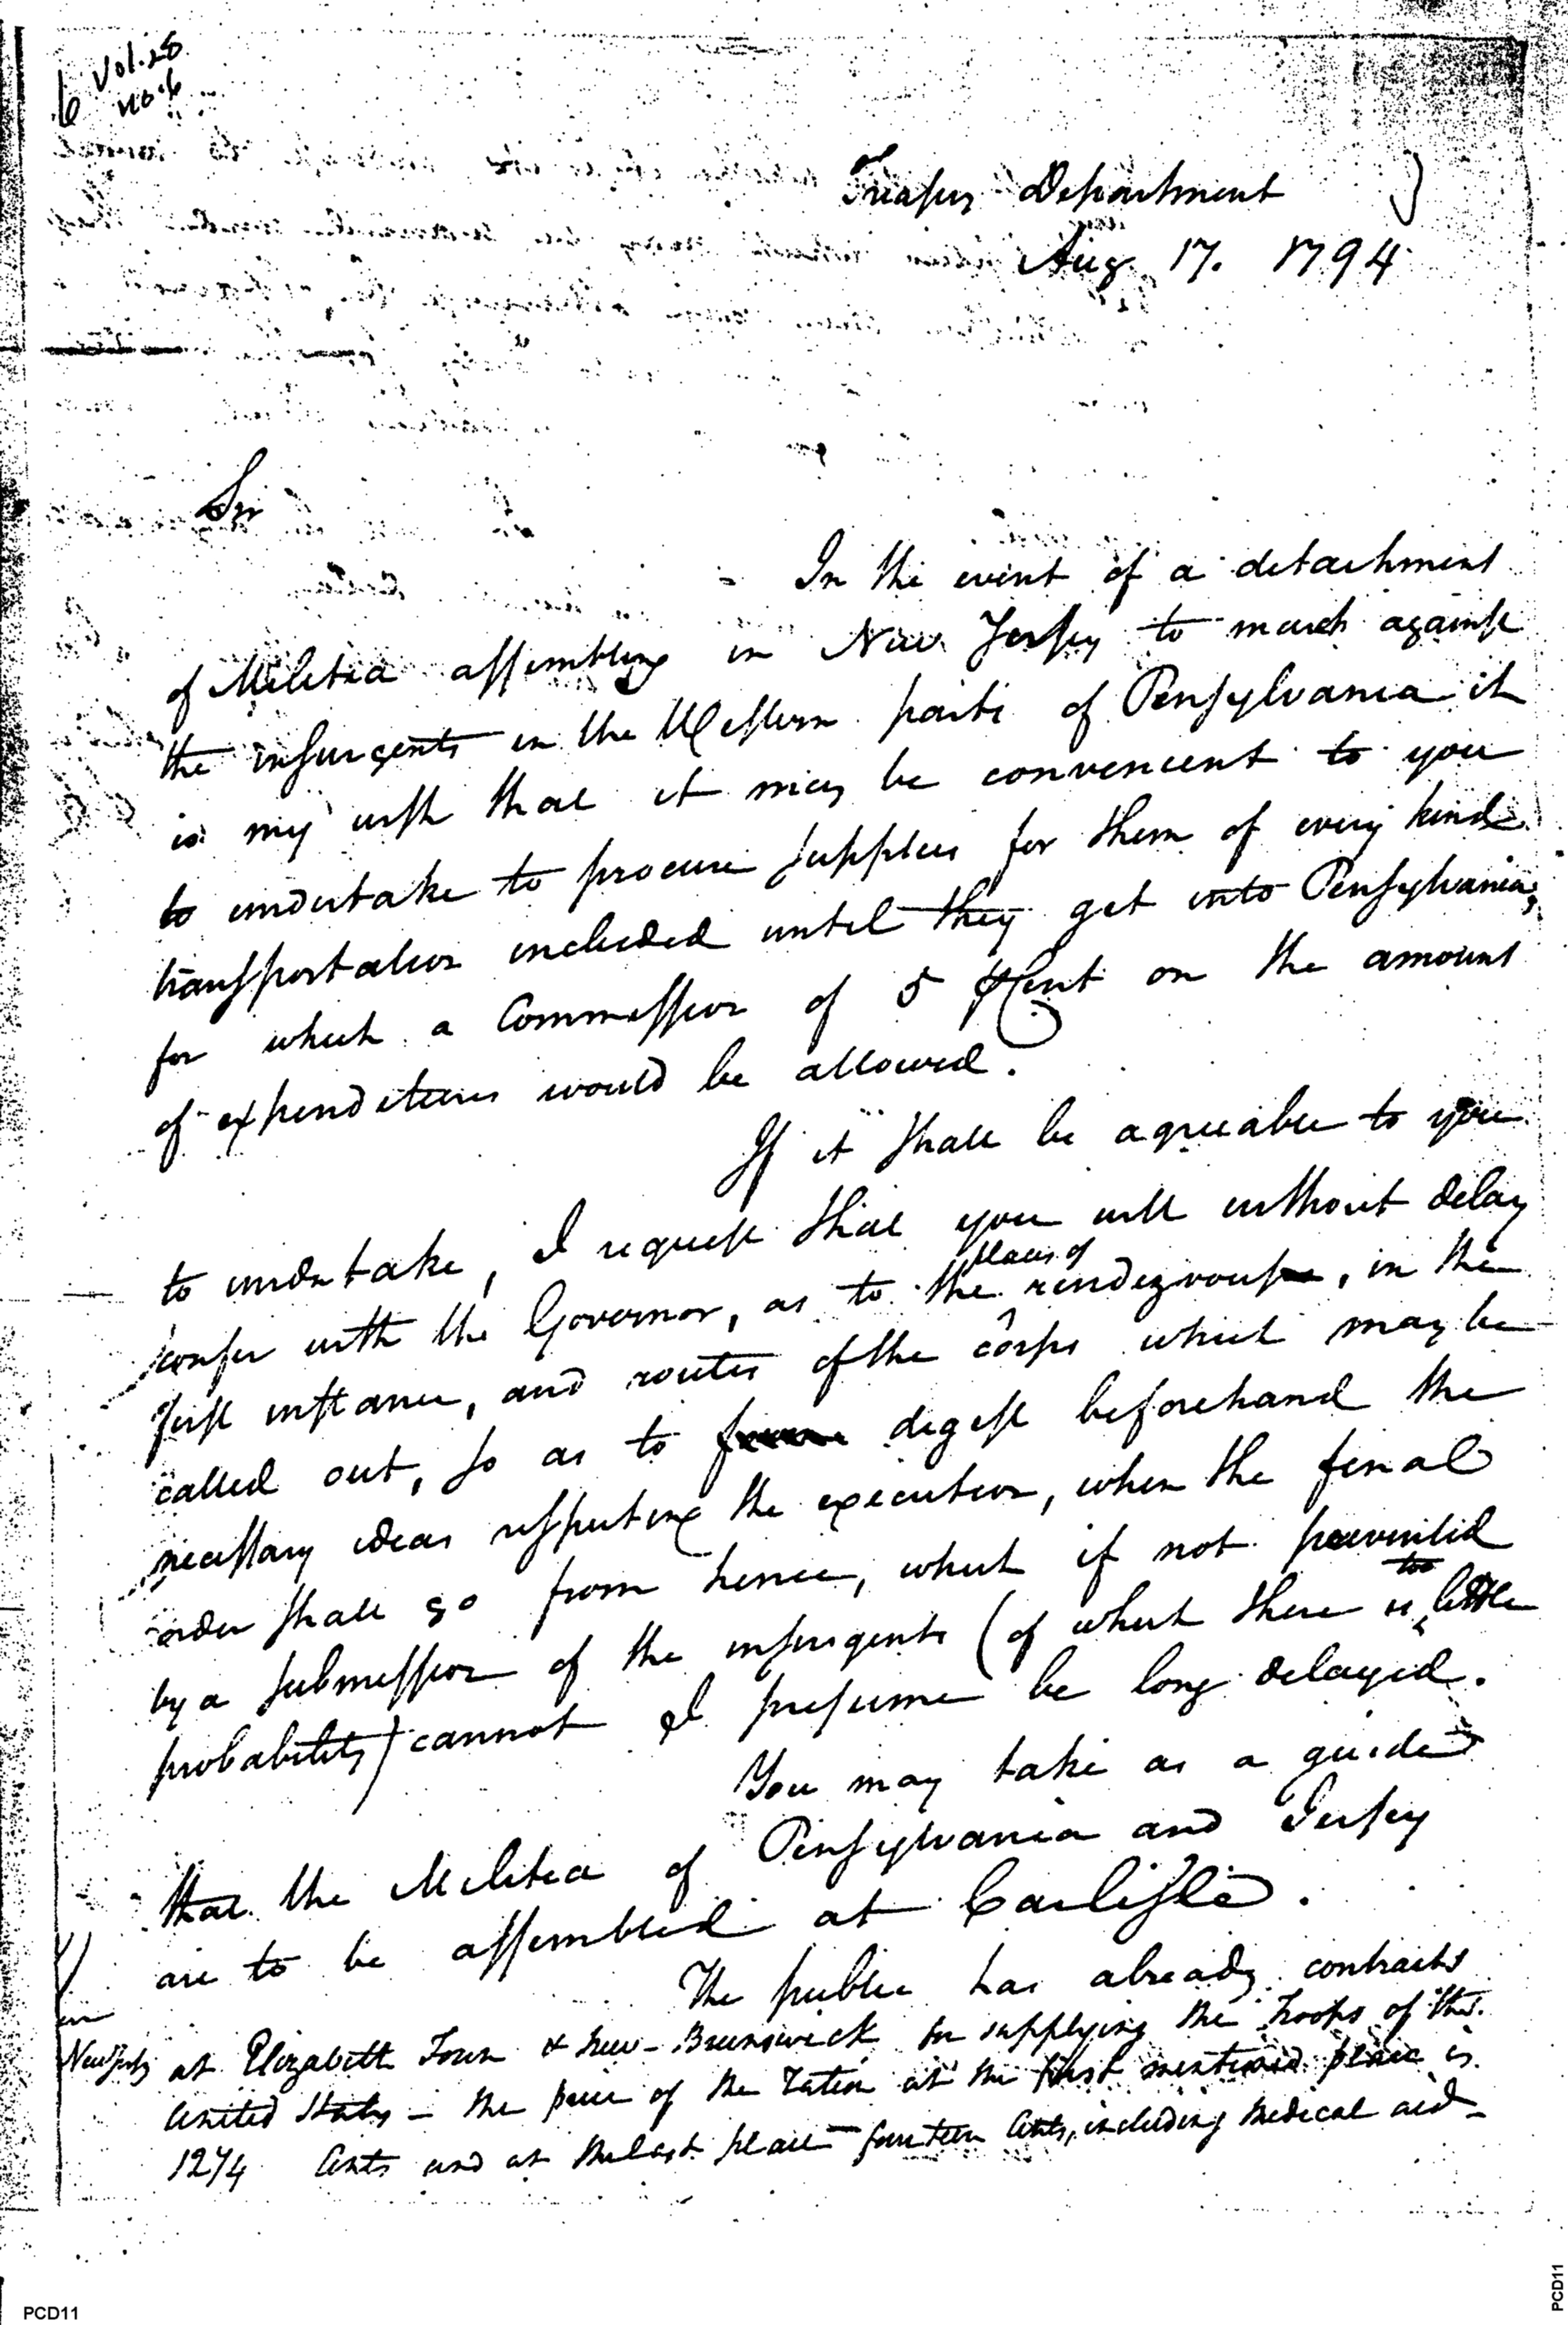 6 Vol. 28
No. 6
Treasury Department
Aug 17. 1794
Sir
In the event of a detachment
of Militia assembling in New Jersey to march against
the insurgents in the Western parts of Pensylvania it
is my wish that it may be convenient to you
to undertake to procure supplies for them of every kind
transportation included until they get into Pensylvania;
for which a Commission of 5 ⅌ Cent on the amount
of expenditures would be allowed.
If it shall be agreeable to you
to undertake, I request that you will without delay
places of
confer with the Governor, as to the rendezvous, in the
first instance, and routes of the corps which may be
called out, so as to digest beforehand the
necessary ideas respecting the execution, when the final
order shall go from hence, which if not prevented
too
by a submission of the insurgents (of which there is little
probability) cannot I presume be long delayed.
You may take as a guide
that the Militia of Pensylvania and Jersey
are to be assembled at Carlisle.
The public has already contracts
in
New Jersey at Elizabeth Town & New-Brunswick for supplying the troops of the
United States – the price of the ration at the first mentioned place is
12 1/4 Cents and at the last place fourteen Cents, including Medical aid –
PCD11
PCD11